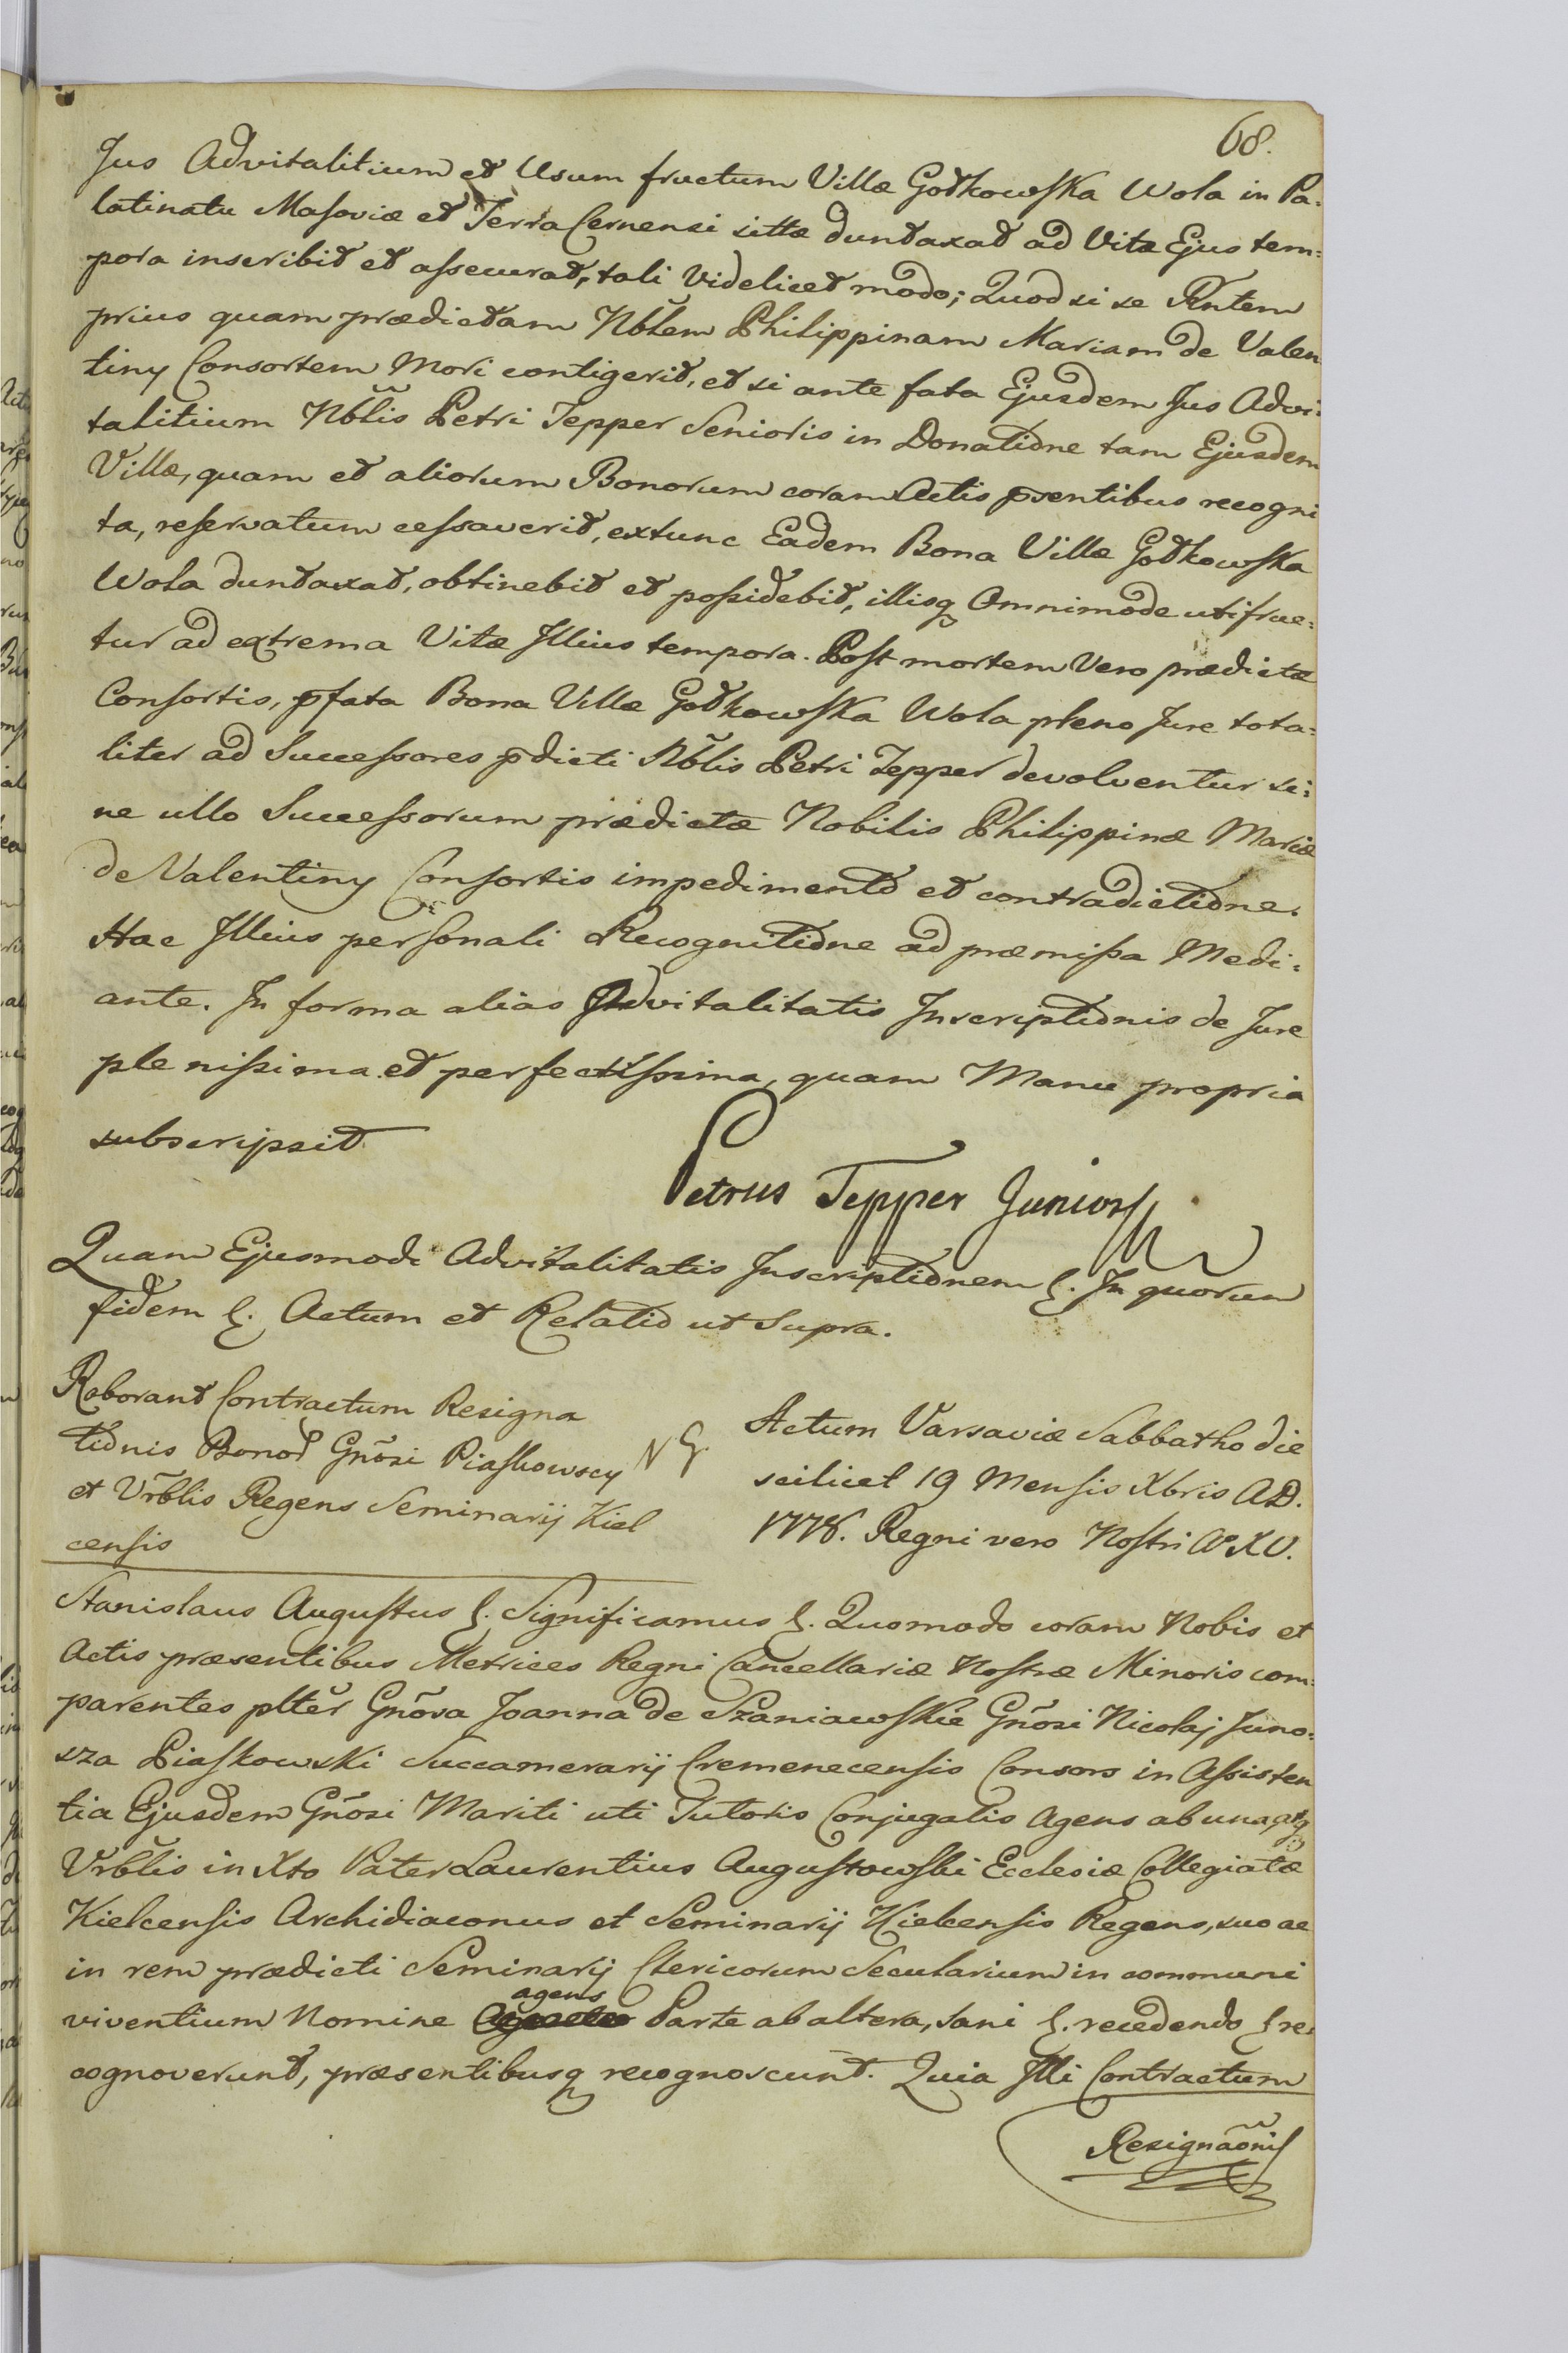 68.
Jus Advitalitium et Usum fructum Villæ Gotkowska Wola in Pa=
latinatu Masoviæ et Terra Cernensi sittæ duntaxat ad Vitæ Ejus tem=
pora inscribit et assecurat, tali videlicet modo; Quod si se Rntem
prius quam prædictam Nblem Philippinam Mariam de Valen
tiny Consortem Mori contigerit, et si ante fata Ejusdem Jus Advi=
talitium Nblis Petri Tepper Senioris in Donatione tam Ejusdem
Villæ, quam et aliorum Bonorum coram Actis p̄sentibus recogni
ta, reservatum cessaverit, extunc Eadem Bona Villæ Gotkowska
Wola duntaxat, obtinebit et possidebit, illisq Omnimode utifrue=
tur ad extrema Vitæ Illius tempora. Post mortem Vero prædictæ
Consortis, p̄fata Bona Villæ Gotkowska Wola pleno Jure tota=
liter ad Successores p̄dicti Nblis Petri Tepper devolventur si=
ne ullo Successorum prædictæ Nobilis Philippinæ Mariæ
de Valentiny Consortis impedimento et contradictione.
Hac Illius personali Recognitione ad præmissa Medi=
ante. In forma alias Advitalitatis Inscriptionis de Jure
plenissima et perfectissima, quam Manu propria
subscripsit
Petrus Tepper Junior
Quam Ejusmodi Advitalitatis Inscriptionem &. In quorum
fidem &. Actum et Relatio ut Supra.
Roborant Contractum Resigna
tionis Bonor Gnõsi Piaskowscy
et Vrblis Regens Seminarij Kiel
censis
Actum Varsaviæ Sabbatho die
scilicet 19 Mensis Xbris A.D.
1778. Regni vero Nostri Aº XV.
Stanislaus Augustus &. Significamus &. Quomodo coram Nobis et
Actis præsentibus Metrices Regni Cancellariæ Nostræ Minoris com=
parentes plter Gnõsa Joanna de Szaniawskie Gnõsi Nicolaj Juno=
sza Piaskowski Succamerarij Cremenecensis Consors in Assisten
tia Ejusdem Gnõsi Mariti uti Tutoris Conjugalis Agens ab una, atq
Vrblis in Xto Pater Laurentius Augustowski Ecclesiæ Collegiatæ
Kielcensis Archidiaconus et Seminarij Kielcensis Regens, suo ac
in rem prædicti Seminarij Clericorum Secularium in communi
viventium Nomine agens Parte ab altera, sani &. recedendo & re=
cognoverunt, præsentibusq recognoscunt. Quia Illi Contractum
Resignãonis